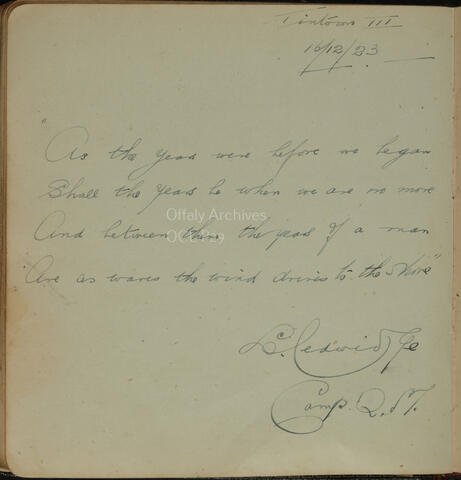 Tintown III
16/12/23
"As the years were before we began
Shall the years be when we are no more
And between them the years of a man
Are as waves the wind drives to the shore"
L. Ledwidge
Camp Q.M.
Offaly Archives